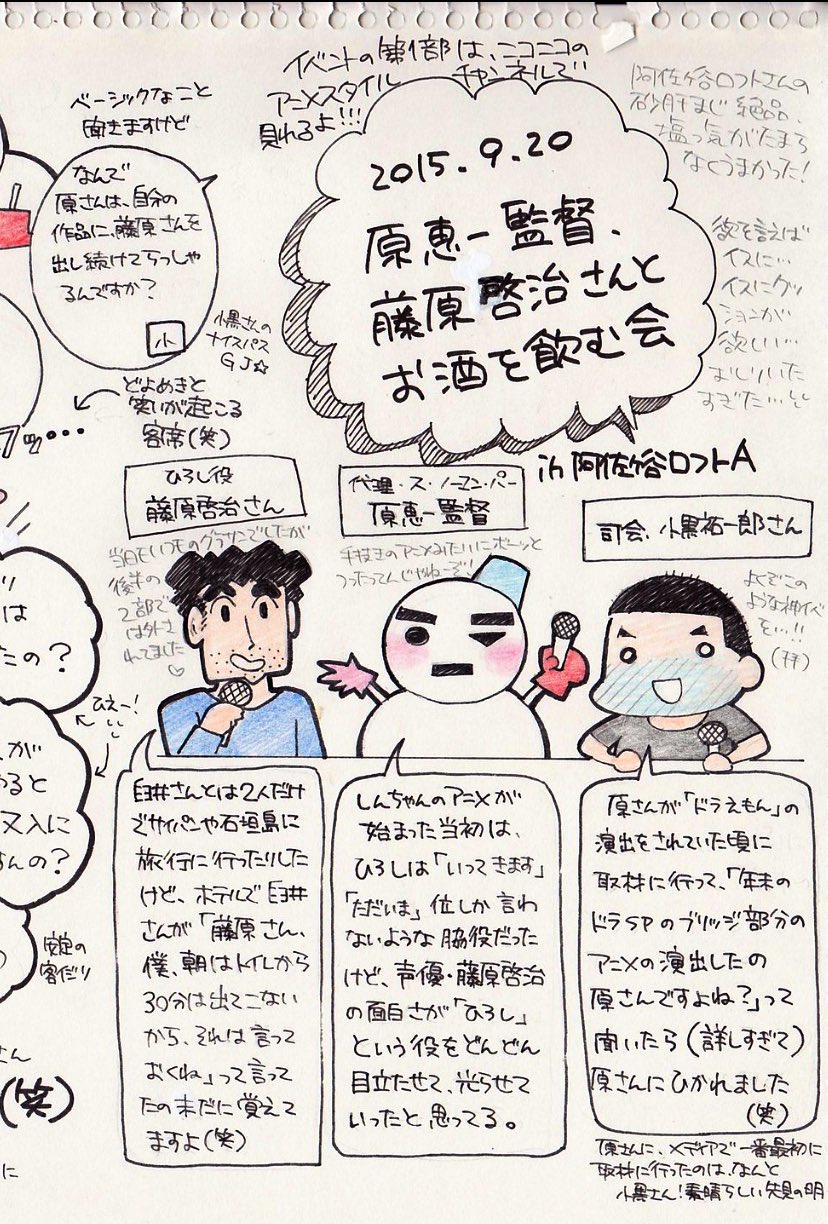 イベントの第1部は、ニコニコの
アニメスタイルチャンネルで
見れるよ!!!
阿佐ヶ谷ロフトさんの
砂肝まじ絶品、
塩っ気がたまら
なくうまかった!
ベーシックなこと
聞きますけど
なんで
原さんは、自分の
作品に、藤原さんを
出し続けてらっしゃ
るんですか?
小
小黒さんの
ナイスパス
GJ☆
2015.9.20
原恵一監督、
藤原啓治さんと
お酒を飲む会
in 阿佐ヶ谷ロフトA
欲を言えば
イスに…
イスにクッ
ションが
欲しい…
おしりいた
すぎた…
どよめきと
笑いが起こる
客席(笑)
ひろし役
藤原啓治さん
代理・ス・ノーマン・パー
原恵一監督
司会、小黒祐一郎さん
当日もいつものグラサンでしたが
後半の
2部で
は外さ
れてました♡
手抜きのアニメみたいにボーッと
つったってんじゃねーぞ!
よくぞこの
ような神イベ
を…!!
(拝)
は
たの?
ひえー!
が
やると
又入に
すんの?
安定の
客だり
さん
(笑)
に
臼井さんとは2人だけ
でサイパンや石垣島に
旅行に行ったりした
けど、ホテルで臼井
さんが「藤原さん、
僕、朝はトイレから
30分は出てこない
から、それは言って
おくね」って言って
たの未だに覚えて
ますよ(笑)
しんちゃんのアニメが
始まった当初は、
ひろしは「いってきます」
「ただいま」位しか言わ
ないような脇役だった
けど、声優・藤原啓治
の面白さが「ひろし」
という役をどんどん
目立たせて、光らせて
いったと思ってる。
原さんが「ドラえもん」の
演出をされていた頃に
取材に行って、「年末の
ドラSPのブリッジ部分の
アニメの演出したの
原さんですよね?」って
聞いたら(詳しすぎて)
原さんにひかれました
(笑)
原さんに、メディアで一番最初に
取材に行ったのは、なんと
小黒さん!素晴らしい先見の明